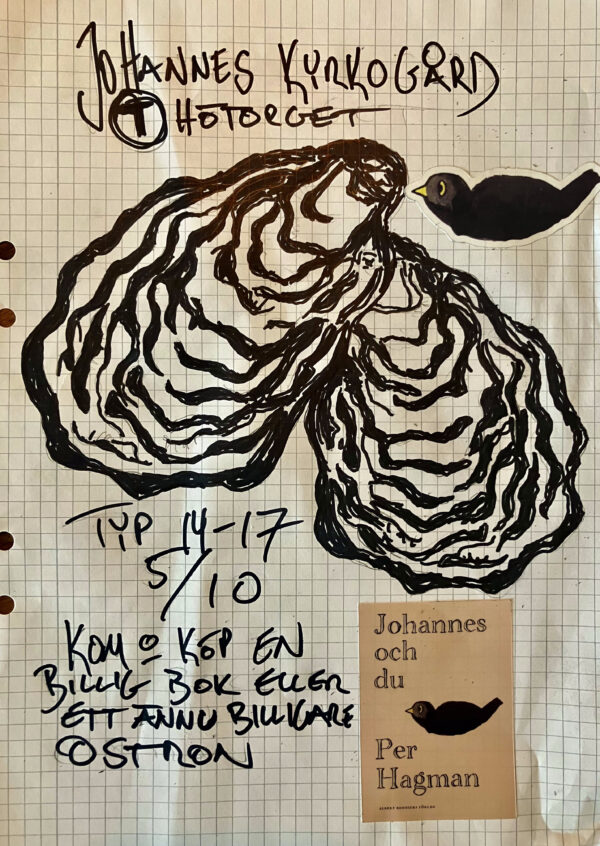 JOHANNES KYRKOGÅRD
T HÖTORGET
TYP 14-17
5/10
KOM O KÖP EN
BILLIG BOK ELLER
ETT ÄNNU BILLIGARE
OSTRON
Johannes
och
du
Per
Hagman
ALBERT BONNIERS FÖRLAG